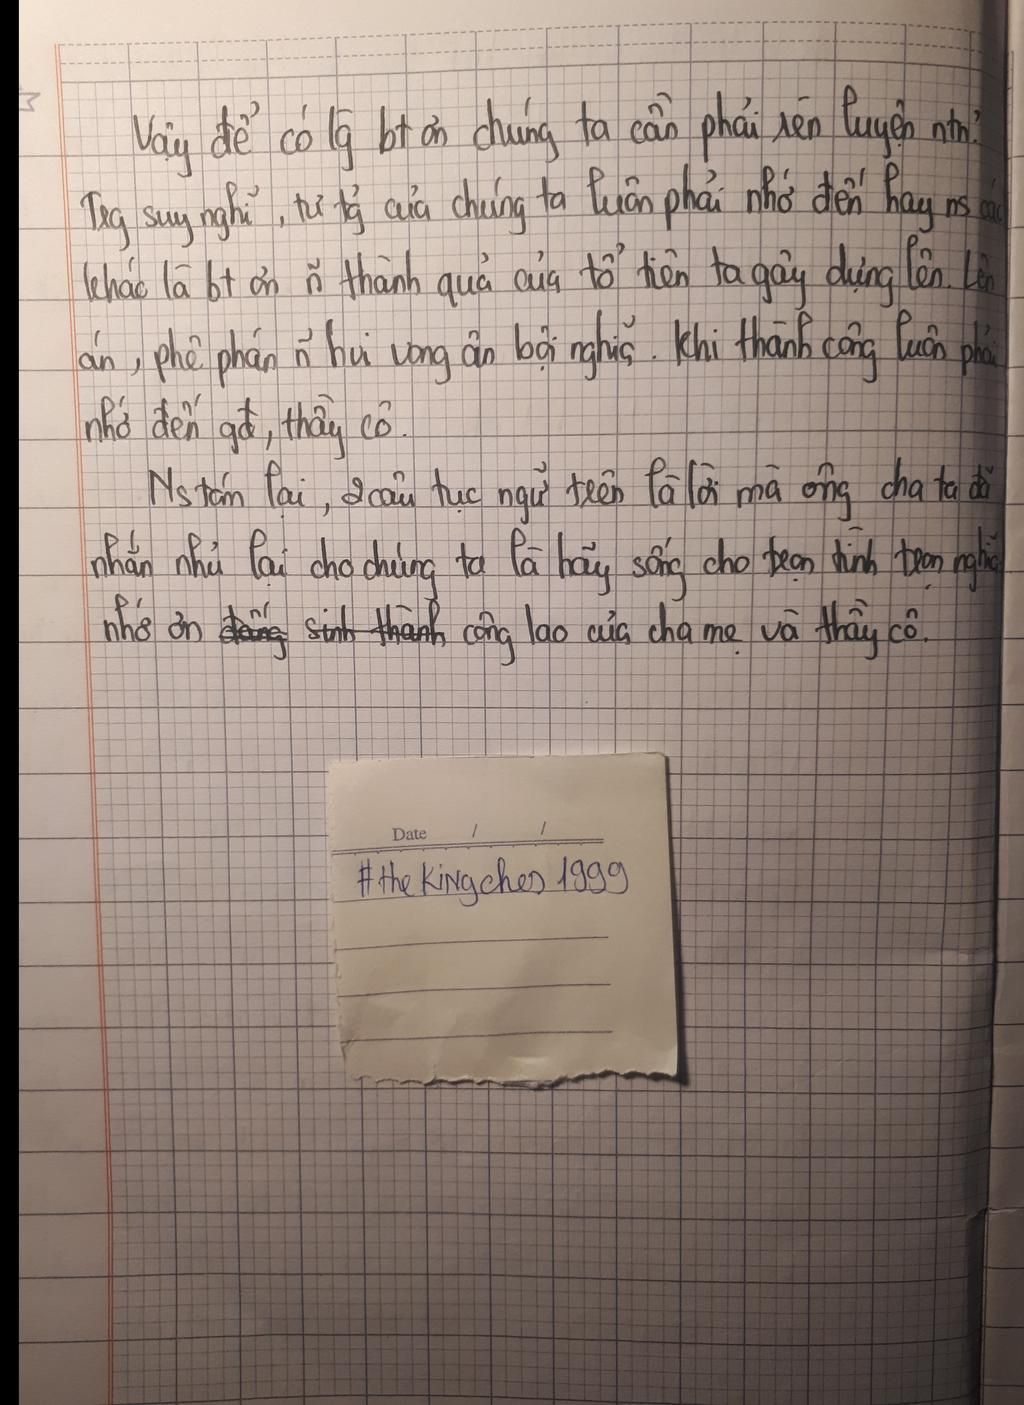 Vậy để có lg bt ơn chúng ta cần phải rèn luyện ntn?
Trg suy nghĩ, tư tg của chúng ta luôn phải nhớ đến hay ns các
khác là bt ơn ñ thành quả của tổ tiên ta gây dựng lên. Lên
án, phê phán ñ hvi vong ân bội nghĩa. Khi thành công luôn phải
nhớ đến gđ, thầy cô.
Ns tóm lại, 2 câu tục ngữ trên là lời mà ông cha ta đã
nhắn nhủ lại cho chúng ta là hãy sống cho trọn tình trọn nghĩa
nhớ ơn sinh thành công lao của cha mẹ và thầy cô.
Date / /
#the KiNgches 1999